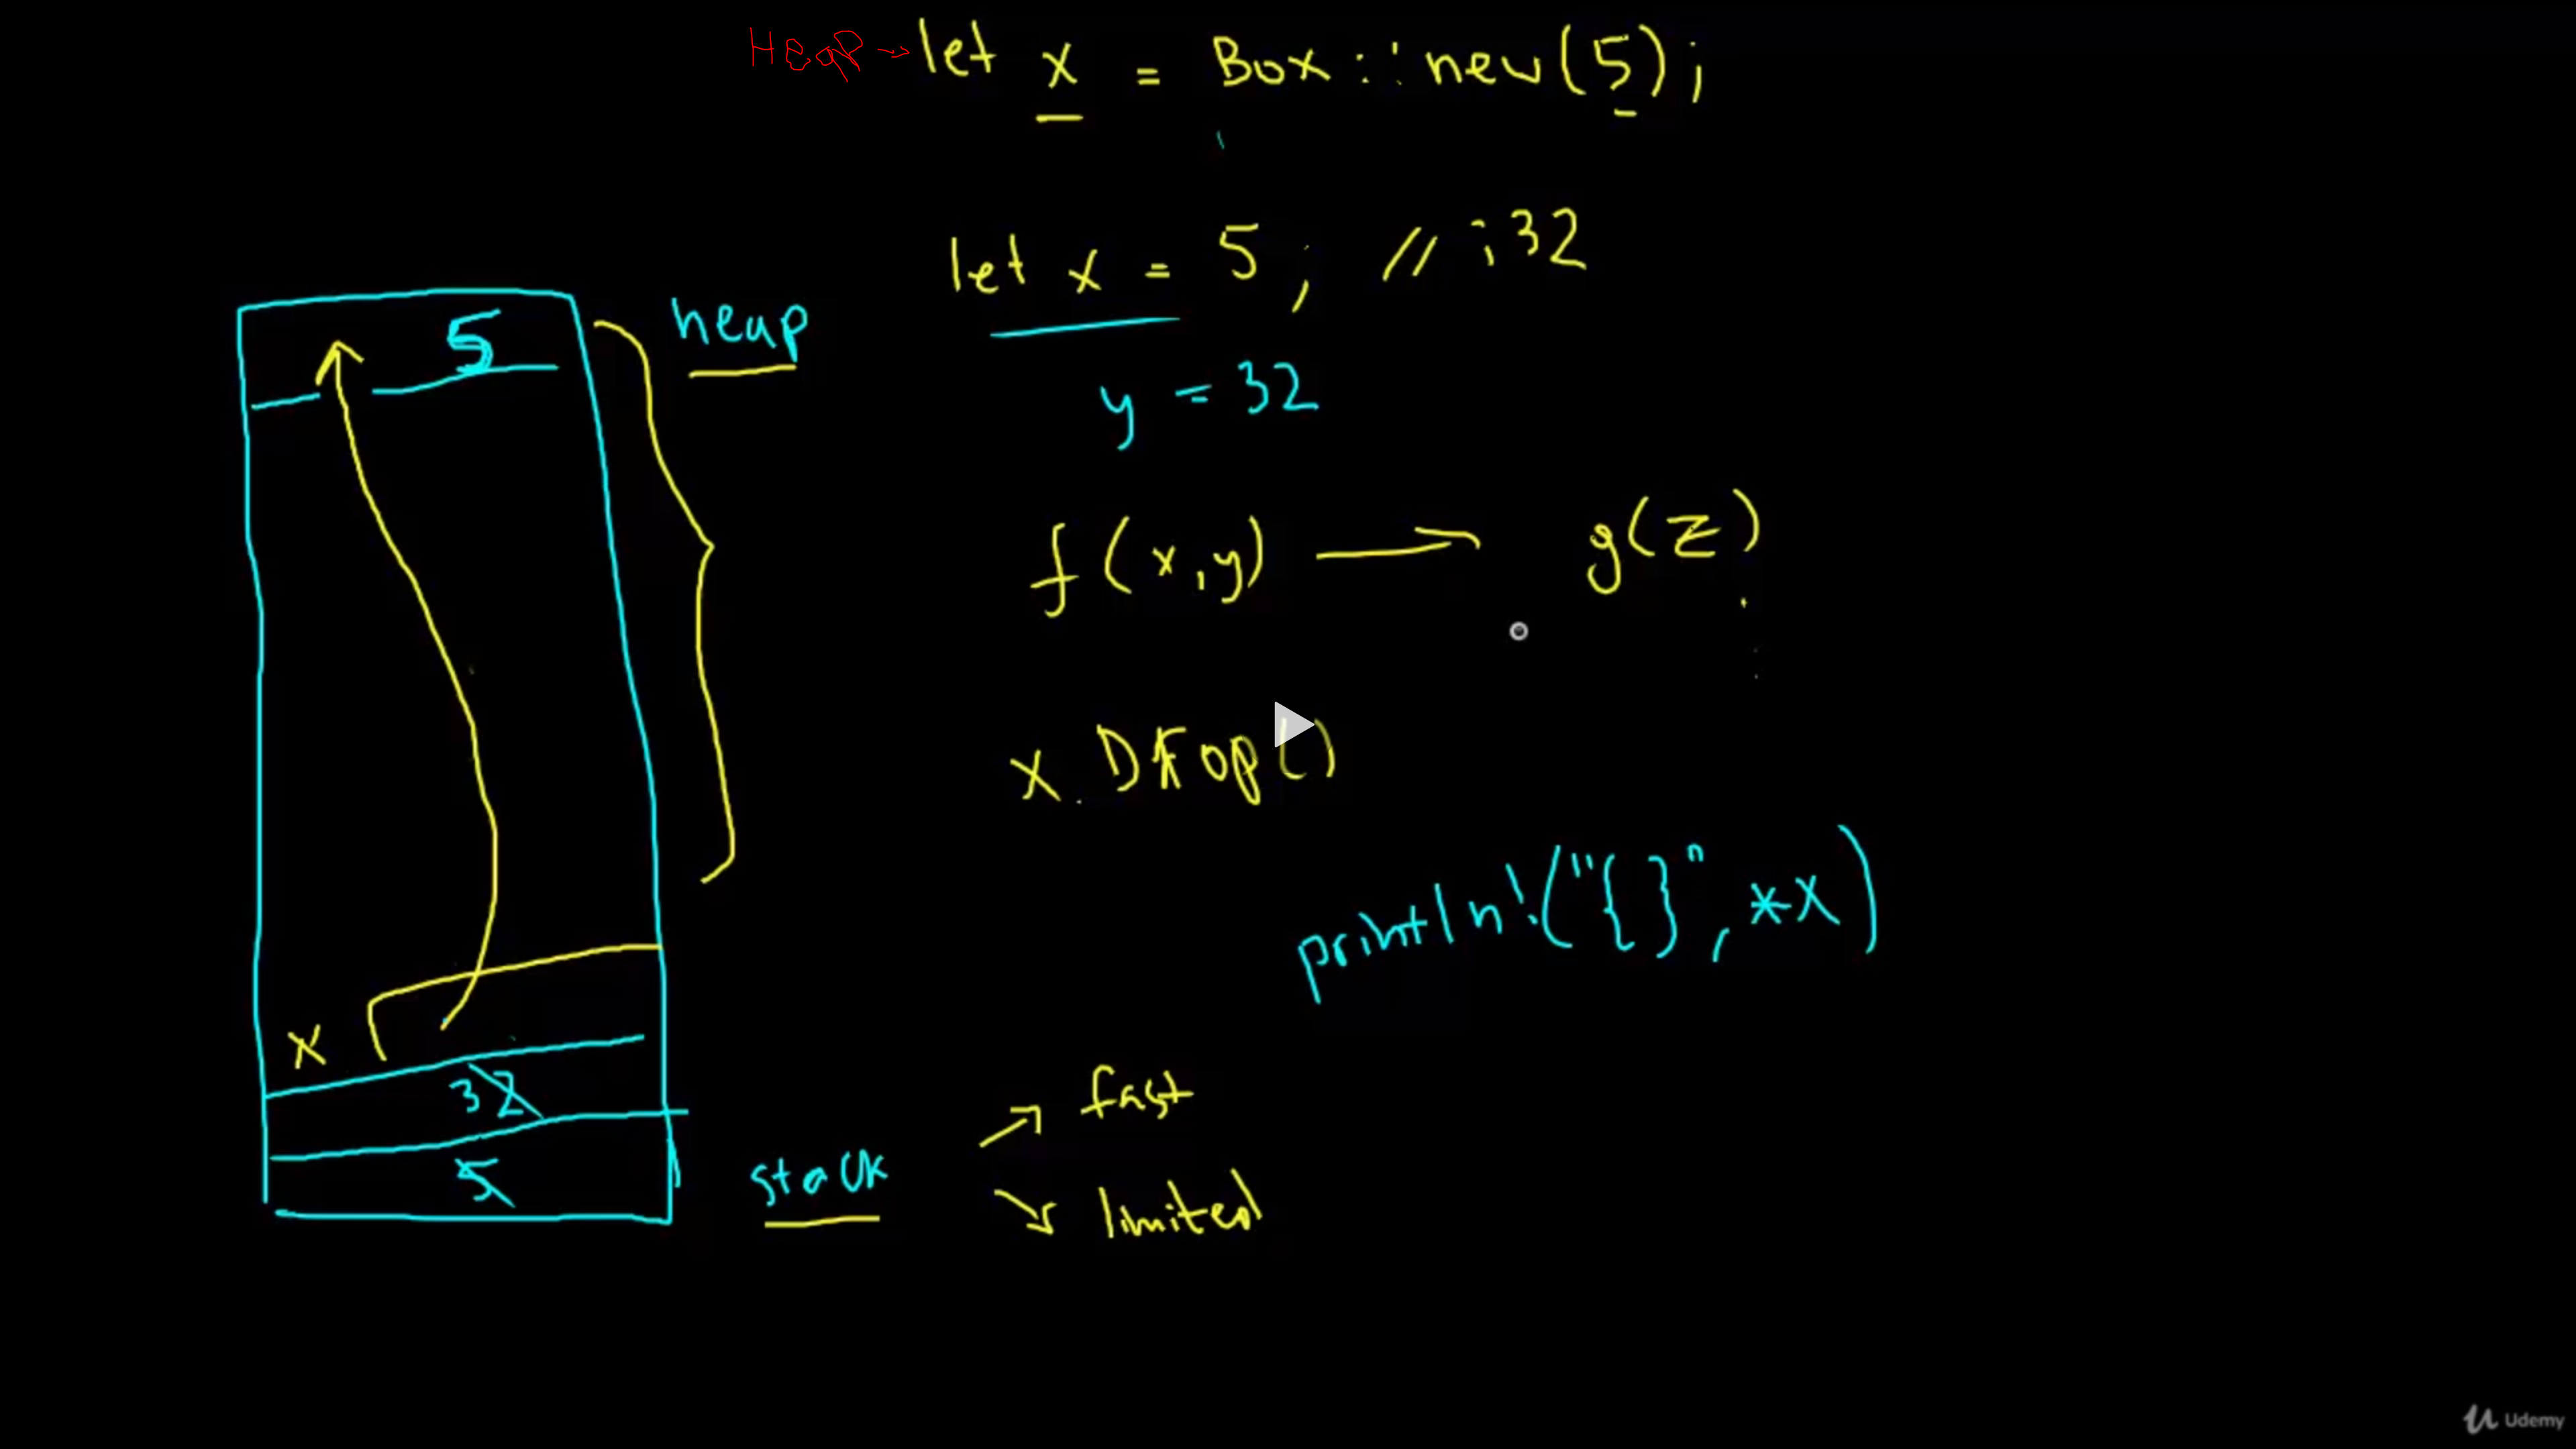 HEAP → let x = Box::new(5);
let x = 5; // i32
y = 32
f(x,y) → g(z)
x.Drop()
println!("{}", *x)
5
heap
x
32
5
stack
fast
limited
Udemy